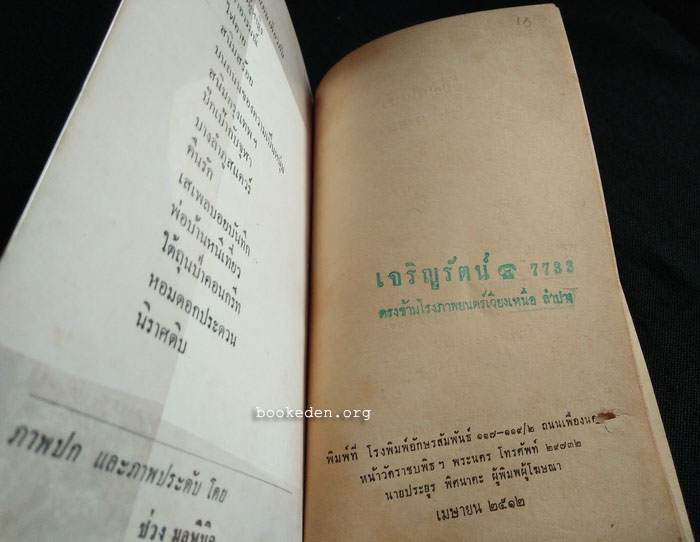 สนิมสร้อย
บนถนนของความเป็นหนุ่ม
สนิมกรุงเทพฯ
ปีกเป้ากับจุฬา
บางลำภูสแควร์
คืนรัก
เสเพลบอยบันทึก
พ่อบ้านหนีเที่ยว
ใต้ถุนป่าคอนกรีท
หอมดอกประดวน
นิราศดิบ
ภาพปก และภาพประดับ โดย
ช่วง มูลพินิจ
๑๐
เจริญรัตน์ ๔ 7733
ตรงข้ามโรงภาพยนตร์เวียงเหนือ ลำปาง
bookeden.org
พิมพ์ที่ โรงพิมพ์อักษรสัมพันธ์ ๑๑๗-๑๑๙/๒ ถนนเฟื่องนคร
หน้าวัดราชบพิธฯ พระนคร โทรศัพท์ ๒๙๗๓๒
นายประยูร พิศนาคะ ผู้พิมพ์ผู้โฆษณา
เมษายน ๒๕๑๒